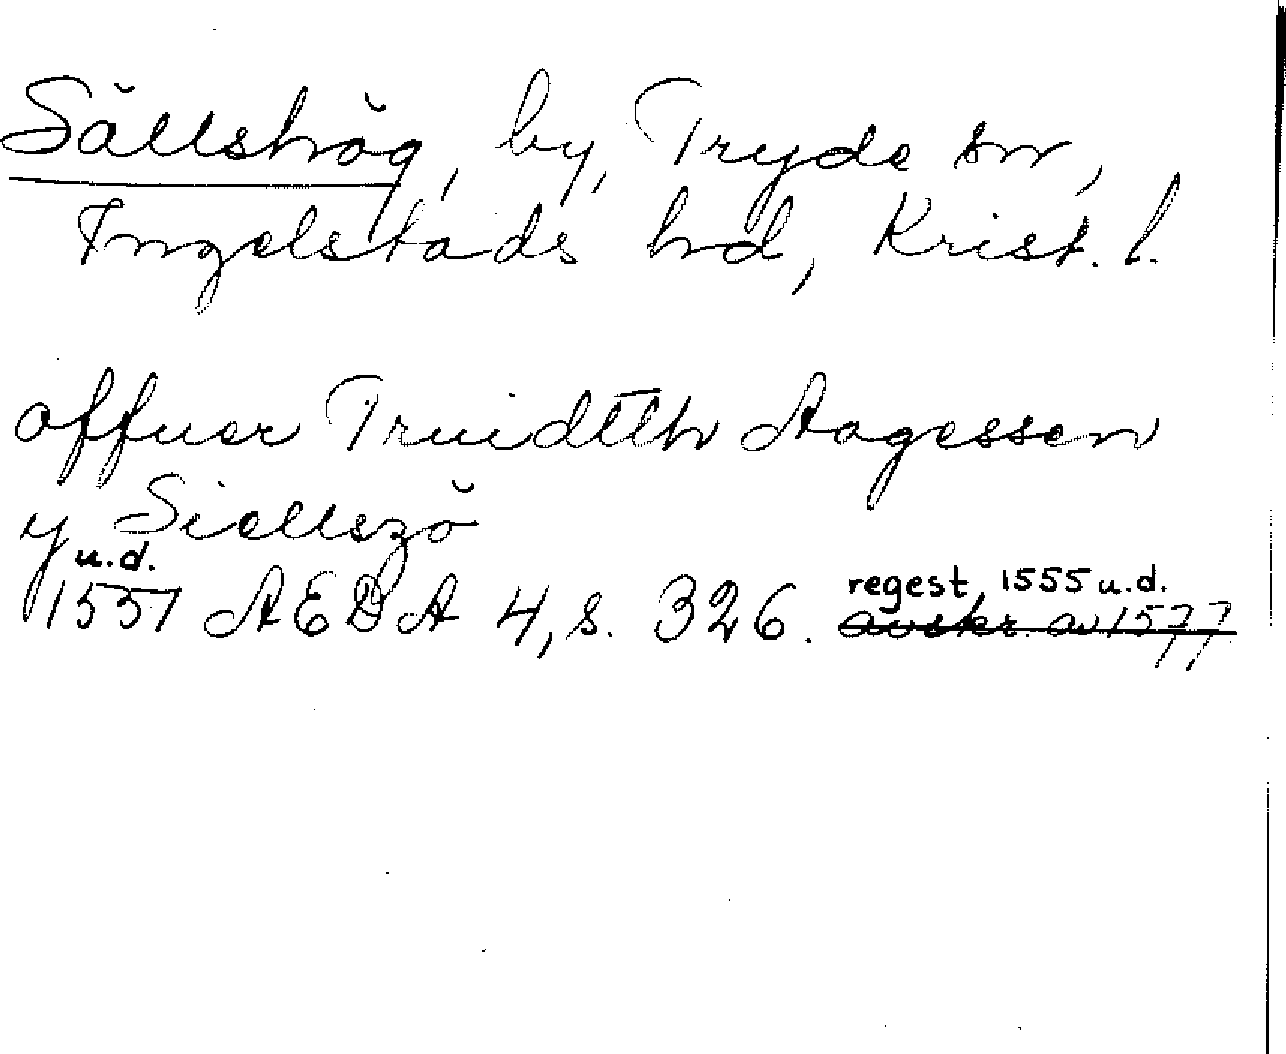 Sällshög, by, Tryde sn,
Ingelstads hd, Krist. l.
offuer Truidtth Aagessen
y Siellszö
u.d.
1557 AEDA 4, s. 326. regest, 1555 u.d.
avskr. av 1577